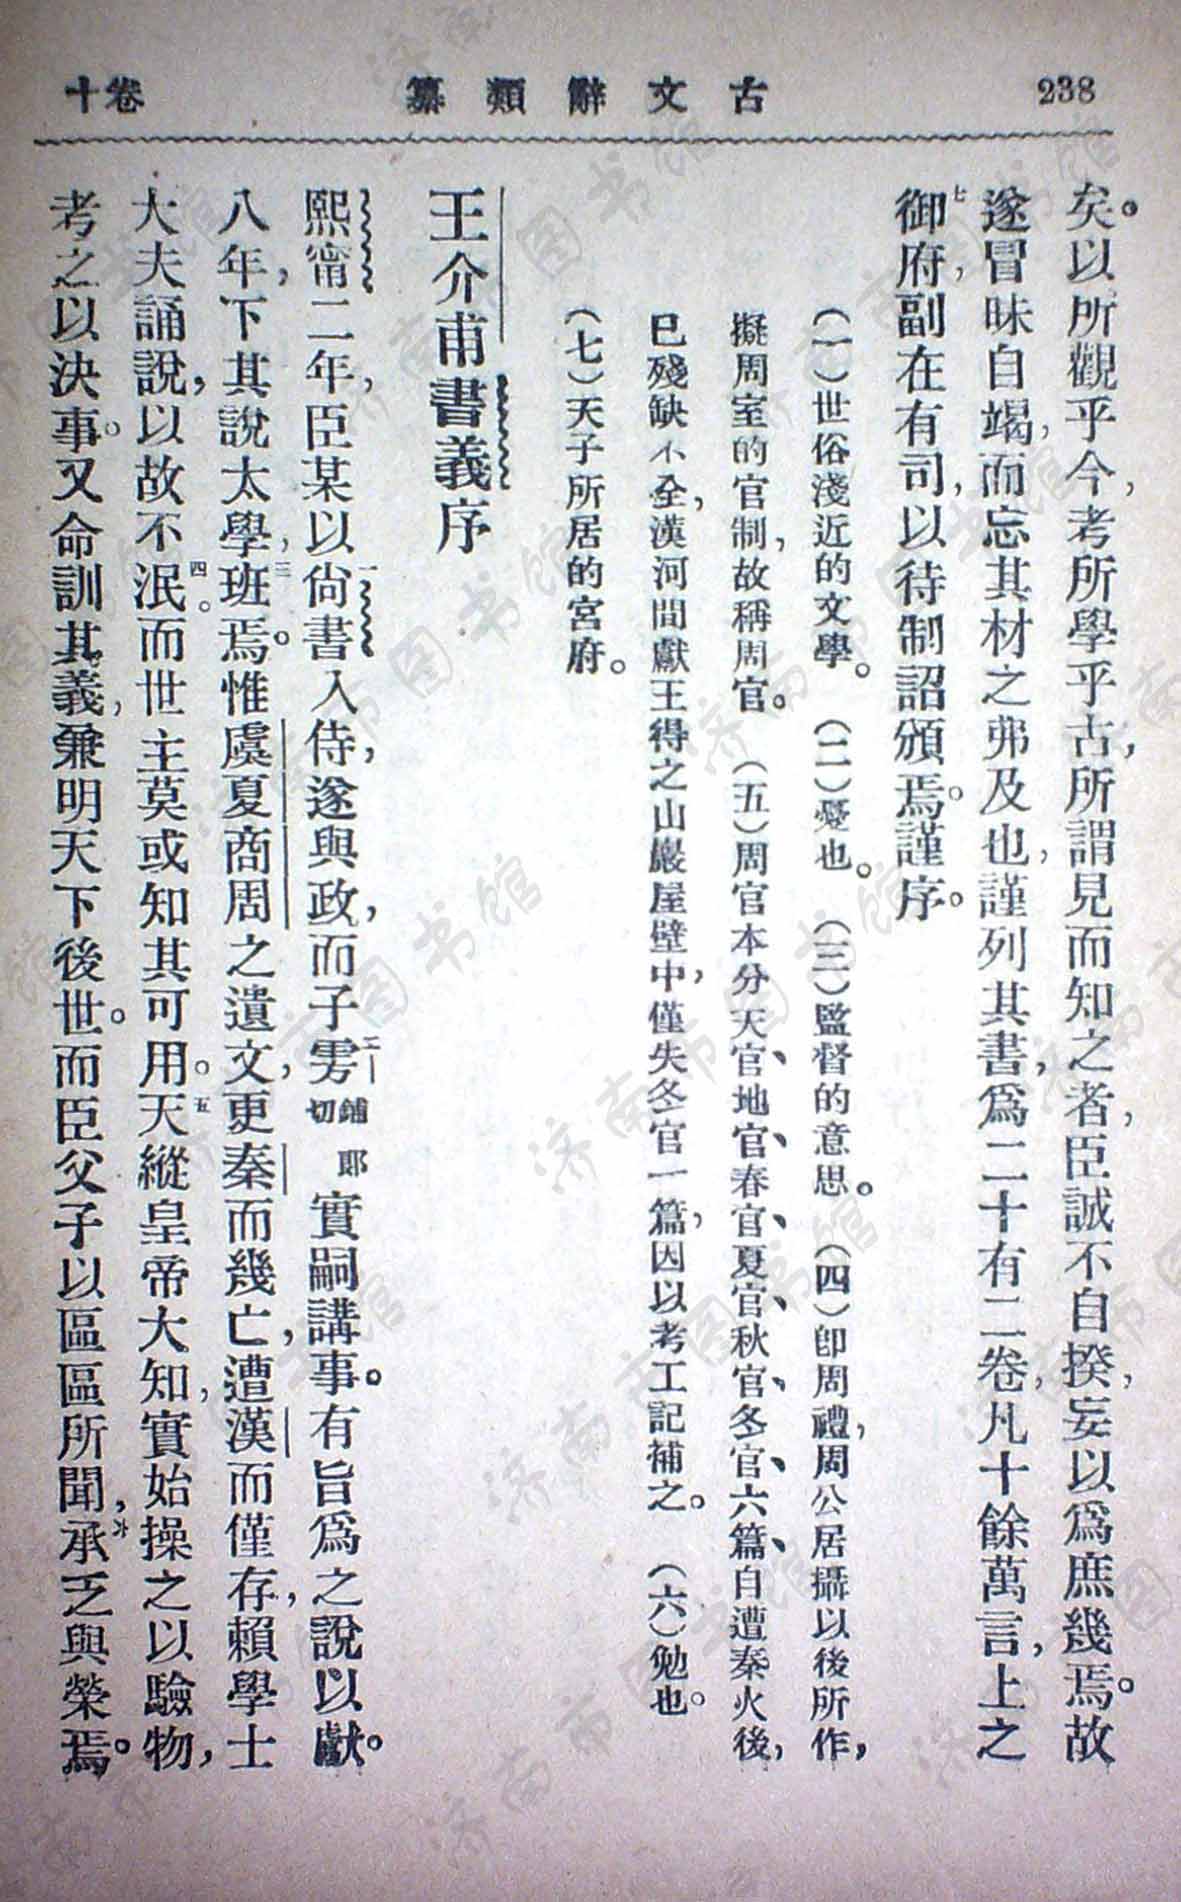 238
古文辭類纂
卷十
矣。以所觀乎今，考所學乎古，所謂見而知之者，臣誠不自揆，妄以爲庶幾焉。故
遂冒昧自竭，而忘其材之弗及也，謹列其書，爲二十有二卷，凡十餘萬言，上之
御府，七副在有司，以待制詔頒焉。謹序。
（一）世俗淺近的文學。（二）憂也。（三）監督的意思。（四）卽周禮，周公居攝以後所作，
擬周室的官制，故稱周官。（五）周官本分天官、地官、春官、夏官、秋官、冬官、六篇、自遭秦火後，
已殘缺不全，漢河間獻王得之山巖屋壁中，僅失冬官一篇，因以考工記補之。（六）勉也。
（七）天子所居的宮府。
王介甫書義序
熙甯二年，臣某以尙書一入侍，遂與政，而子雱二鋪郎切實嗣講事。有旨爲之說以獻。
八年，下其說太學，三班焉。惟虞夏商周之遺文，更秦而幾亡，遭漢而僅存，賴學士
大夫誦說，以故不泯四。而世主莫或知其可用。五天縱皇帝大知，實始操之以驗物，
考之以決事。又命訓其義，兼明天下後世。而臣父子以區區所聞，承六乏與榮焉。